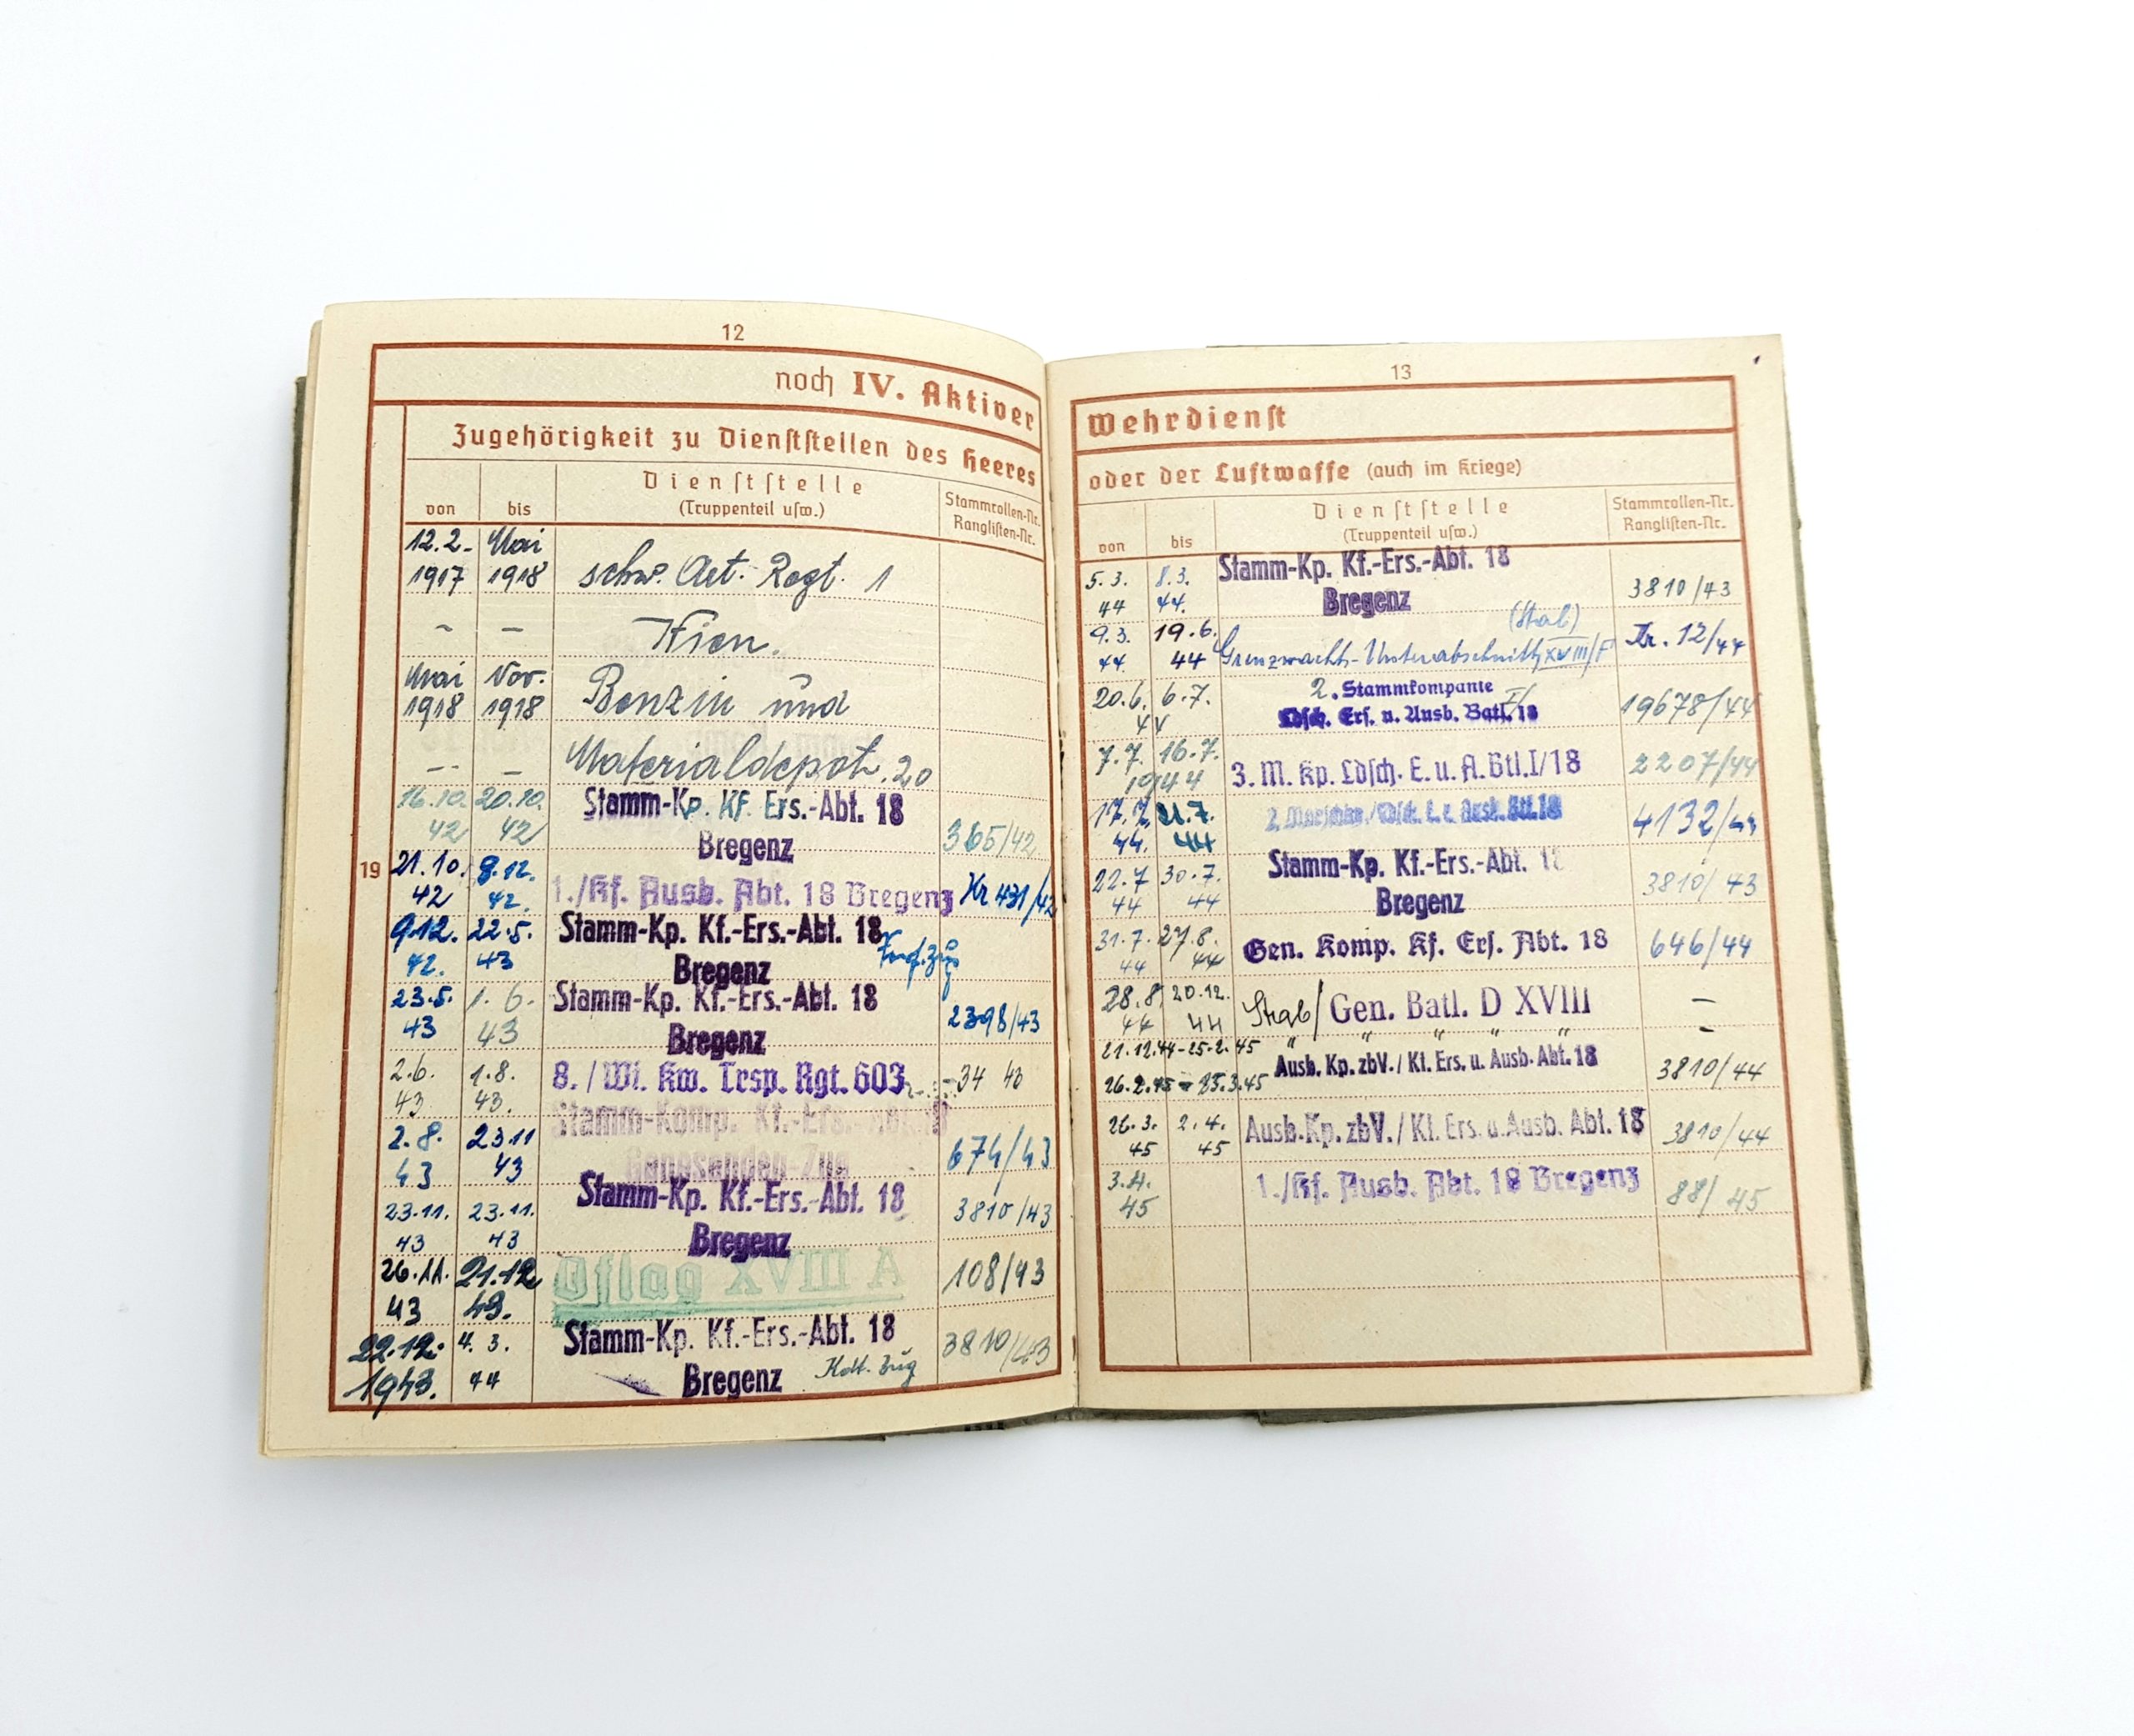 12
noch IV. Aktiver
Zugehörigkeit zu Dienststellen des Heeres
von bis Dienststelle (Truppenteil usw.) Stammrollen-Nr. Ranglisten-Nr.
12.2.- Mai
1917 1918 schw. Art. Regt. 1
~ — Wien.
Mai Nov.
1918 1918 Benzin und
— — Materialdepot. 20
16.10. 20.10. Stamm-Kp. Kf. Ers.-Abt. 18
42 42 Bregenz 365/42
19 21.10. 8.12.
42 42. 1./Kf. Ausb. Abt. 18 Bregenz Kr 431/42
9.12. 22.5. Stamm-Kp. Kf.-Ers.-Abt. 18
42. 43 Bregenz
23.5. 1.6. Stamm-Kp. Kf.-Ers.-Abt. 18
43 43 Bregenz 2398/43
2.6. 1.8. 8./Wi. Kw. Trsp. Rgt. 603 34 43
43 43.
2.8. 23.11 Stamm-Komp. Kf.-Ers.-Abt. 18
43 43 Genesenden-Zug 674/43
23.11. 23.11. Stamm-Kp. Kf.-Ers.-Abt. 18 3810/43
43 43 Bregenz
26.11. 21.12 Oflag XVIII A 108/43
43 43.
22.12. 4.3. Stamm-Kp. Kf.-Ers.-Abt. 18 3810/43
1943. 44 Bregenz Kdt. Zug
13
Wehrdienst
oder der Luftwaffe (auch im Kriege)
von bis Dienststelle (Truppenteil usw.) Stammrollen-Nr. Ranglisten-Nr.
5.3. 8.3. Stamm-Kp. Kf.-Ers.-Abt. 18
44 44. Bregenz 3810/43
9.3. 19.6. (Stab)
44. 44 Grenzwacht-Unterabschnitt XVIII/F Kr. 12/44
20.6. 6.7. 2. Stammkompanie
44 Ldsch. Ers. u. Ausb. Batl. I/18 19678/44
7.7. 16.7.
1944 3. M. Kp. Ldsch. E. u. A. Btl. I/18 2207/44
17.7. 21.7. 2. Marschkp./Ldsch. E. u. Ausb. Btl. 18 4132/44
44. 44
22.7 30.7. Stamm-Kp. Kf.-Ers.-Abt. 18
44 44 Bregenz 3810/43
31.7. 27.8. Gen. Komp. Kf. Ers. Abt. 18 646/44
44 44
28.8. 20.12. Stab/ Gen. Batl. D XVIII —
44 44
21.12.44-25.2.45 " " " " —
26.2.45 - 25.3.45 Ausb. Kp. zbV. / Kf. Ers. u. Ausb. Abt. 18 3810/44
26.3. 2.4. Ausb. Kp. zbV. / Kf. Ers. u. Ausb. Abt. 18 3810/44
45 45
3.4. 1./Kf. Ausb. Abt. 18 Bregenz 88/45
45